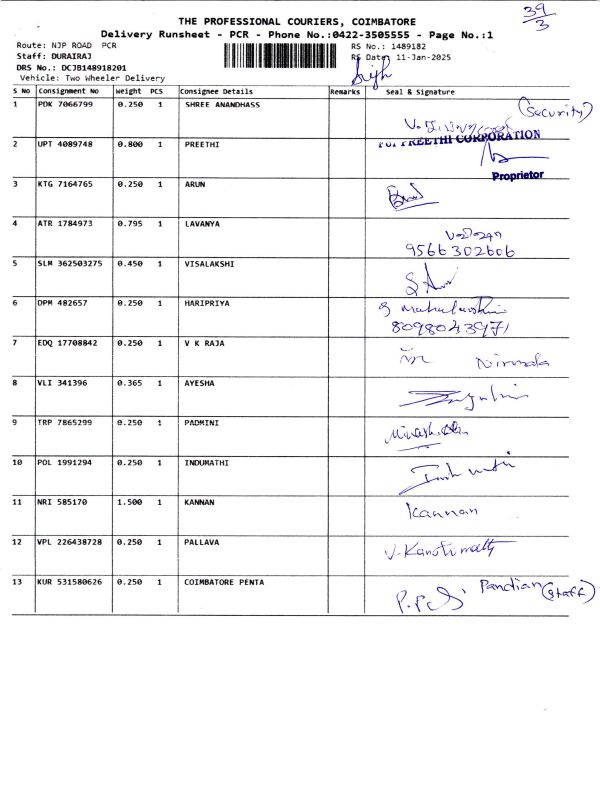 39
3
THE PROFESSIONAL COURIERS, COIMBATORE
Delivery Runsheet - PCR - Phone No.:0422-3505555 - Page No.:1
Route: NJP ROAD PCR
RS No.: 1489182
Staff: DURAIRAJ
RS Date: 11-Jan-2025
DRS No.: DCJB148918201
Vehicle: Two Wheeler Delivery
S No Consignment No Weight PCS Consignee Details Remarks Seal & Signature
1 PDK 7066799 0.250 1 SHREE ANANDHASS
(Security)
2 UPT 4089748 0.800 1 PREETHI
For PREETHI CORPORATION
Proprietor
3 KTG 7164765 0.250 1 ARUN
4 ATR 1784973 0.795 1 LAVANYA
9566302606
5 SLM 362503275 0.450 1 VISALAKSHI
6 DPM 482657 0.250 1 HARIPRIYA
8098043971
7 EDQ 17708842 0.250 1 V K RAJA
Nirmala
8 VLI 341396 0.365 1 AYESHA
9 TRP 7865299 0.250 1 PADMINI
10 POL 1991294 0.250 1 INDUMATHI
11 NRI 585170 1.500 1 KANNAN
Kannan
12 VPL 226438728 0.250 1 PALLAVA
13 KUR 531580626 0.250 1 COIMBATORE PENTA
Pandian (staff)